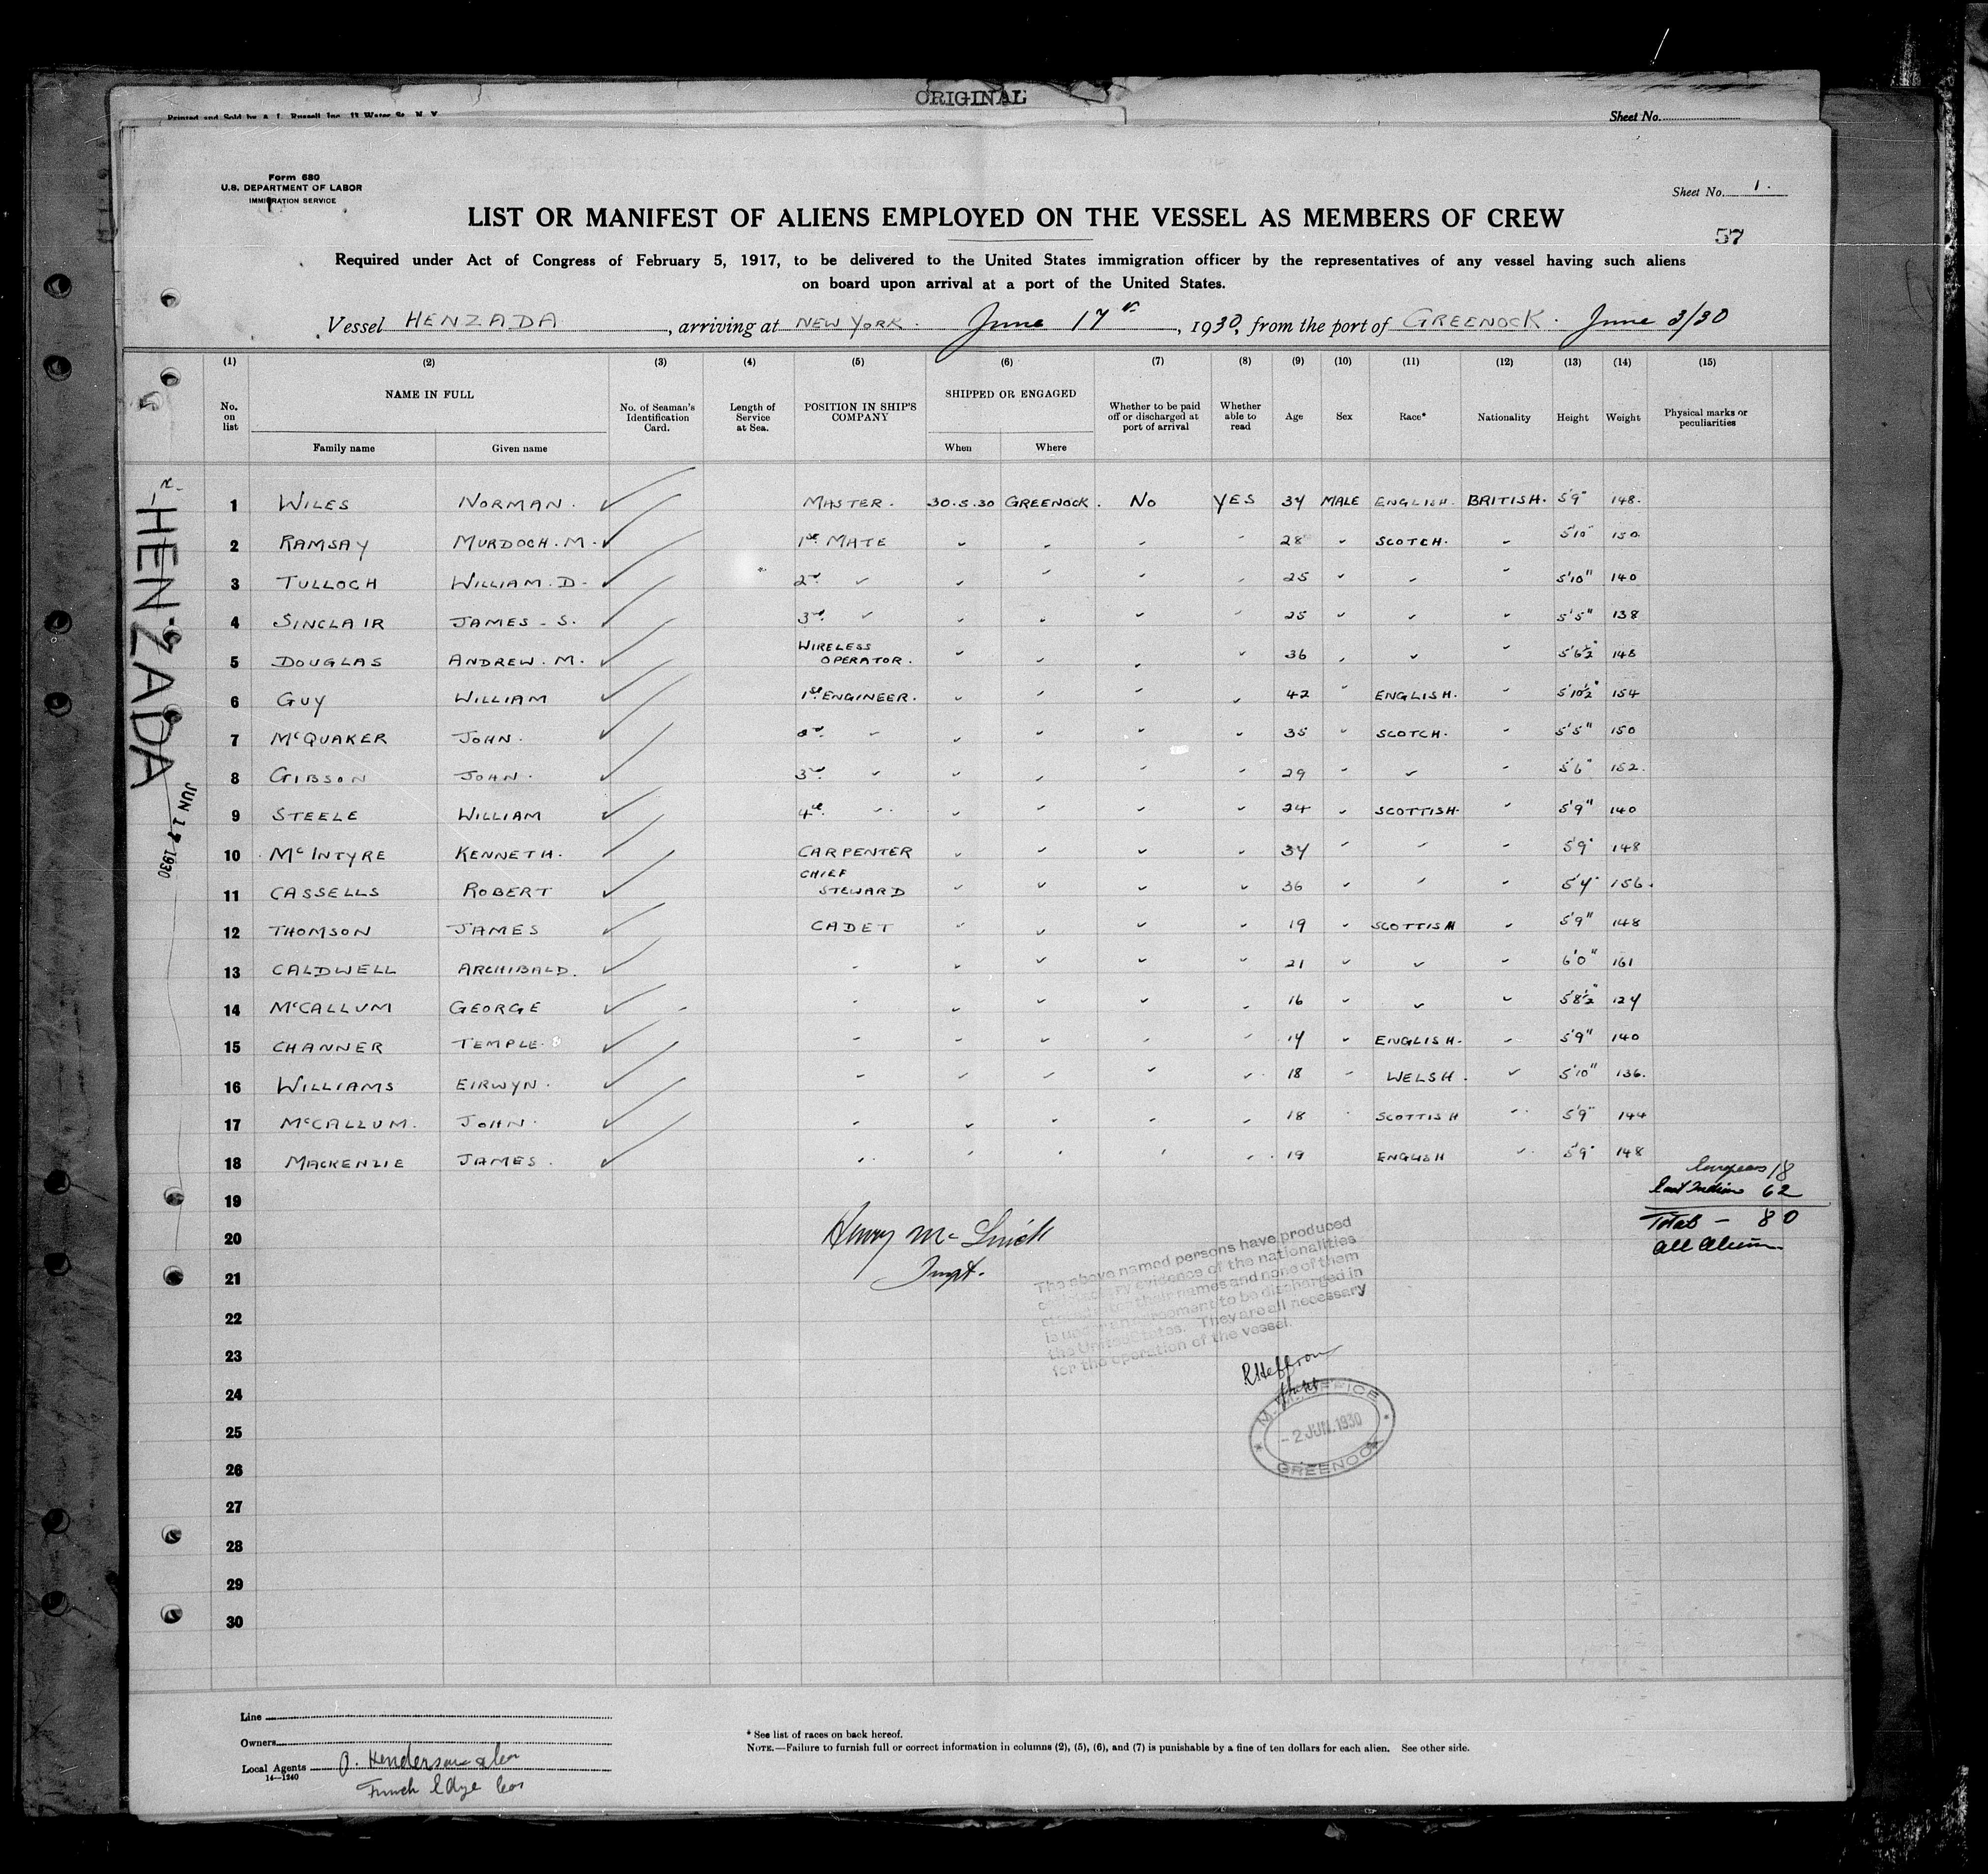 ORIGINAL
Printed and Sold by A. L. Russell Inc. 13 Water St. N. Y.
Sheet No.
Form 680
U.S. DEPARTMENT OF LABOR
IMMIGRATION SERVICE
Sheet No. 1.
LIST OR MANIFEST OF ALIENS EMPLOYED ON THE VESSEL AS MEMBERS OF CREW
57
Required under Act of Congress of February 5, 1917, to be delivered to the United States immigration officer by the representatives of any vessel having such aliens
on board upon arrival at a port of the United States.
Vessel HENZADA, arriving at NEW YORK. June 17th, 1930, from the port of GREENOCK. June 3/30
(1) (2) (3) (4) (5) (6) (7) (8) (9) (10) (11) (12) (13) (14) (15)
No. on list
NAME IN FULL
Family name
Given name
No. of Seaman's Identification Card.
Length of Service at Sea.
POSITION IN SHIP'S COMPANY
SHIPPED OR ENGAGED
When
Where
Whether to be paid off or discharged at port of arrival
Whether able to read
Age
Sex
Race*
Nationality
Height
Weight
Physical marks or peculiarities
1 WILES NORMAN. ✓ MASTER. 30.5.30 GREENOCK. No YES 34 MALE ENGLISH. BRITISH. 5'9" 148.
2 RAMSAY MURDOCH. M. ✓ 1st MATE ✓ ✓ ✓ ✓ 28 ✓ SCOTCH. ✓ 5'10 150
3 TULLOCH WILLIAM. D. ✓ 2nd ✓ ✓ ✓ ✓ ✓ 25 ✓ ✓ ✓ 5'10" 140
4 SINCLAIR JAMES. S. ✓ 3rd ✓ ✓ ✓ ✓ ✓ 25 ✓ ✓ ✓ 5'5" 138
5 DOUGLAS ANDREW. M. ✓ WIRELESS OPERATOR. ✓ ✓ ✓ ✓ 36 ✓ ✓ ✓ 5'6½" 148
6 GUY WILLIAM ✓ 1st ENGINEER. ✓ ✓ ✓ ✓ 42 ✓ ENGLISH. ✓ 5'10½" 154
7 McQUAKER JOHN. ✓ 2nd ✓ ✓ ✓ ✓ ✓ 35 ✓ SCOTCH. ✓ 5'5" 150
8 GIBSON JOHN. ✓ 3rd ✓ ✓ ✓ ✓ ✓ 29 ✓ ✓ ✓ 5'6" 152.
9 STEELE WILLIAM ✓ 4th ✓ ✓ ✓ ✓ ✓ 24 ✓ SCOTTISH. ✓ 5'9" 140
10 McINTYRE KENNETH. ✓ CARPENTER ✓ ✓ ✓ ✓ 34 ✓ ✓ ✓ 5'9" 148
11 CASSELLS ROBERT ✓ CHIEF STEWARD ✓ ✓ ✓ ✓ 36 ✓ ✓ ✓ 5'4" 156.
12 THOMSON JAMES ✓ CADET ✓ ✓ ✓ ✓ 19 ✓ SCOTTISH ✓ 5'9" 148
13 CALDWELL ARCHIBALD. ✓ ✓ ✓ ✓ ✓ ✓ 21 ✓ ✓ ✓ 6'0" 161
14 McCALLUM GEORGE ✓ ✓ ✓ ✓ ✓ ✓ 16 ✓ ✓ ✓ 5'8½" 124
15 CHANNER TEMPLE. ✓ ✓ ✓ ✓ ✓ ✓ 14 ✓ ENGLISH. ✓ 5'9" 140
16 WILLIAMS EIRWYN. ✓ ✓ ✓ ✓ ✓ ✓ 18 ✓ WELSH. ✓ 5'10" 136.
17 McCALLUM. JOHN. ✓ ✓ ✓ ✓ ✓ ✓ 18 ✓ SCOTTISH ✓ 5'9" 144
18 MACKENZIE JAMES. ✓ ✓ ✓ ✓ ✓ ✓ 19 ENGLISH ✓ 5'9" 148
19
20
21
22
23
24
25
26
27
28
29
30
Europeans 18
East Indian 62
Total - 80
All Aliens
The above named persons have produced
satisfactory evidence of the nationalities
set against their names and none of them
is under an agreement to be discharged in
the United States. They are all necessary
for the operation of the vessel.
R Heffron
M. M. OFFICE
- 2 JUN. 1930
GREENOCK
HENZADA
JUN 17 1930
Line
Owners
Local Agents P. Henderson & Co
14—1240
Funch Edye Co
* See list of races on back hereof.
NOTE.—Failure to furnish full or correct information in columns (2), (5), (6), and (7) is punishable by a fine of ten dollars for each alien. See other side.